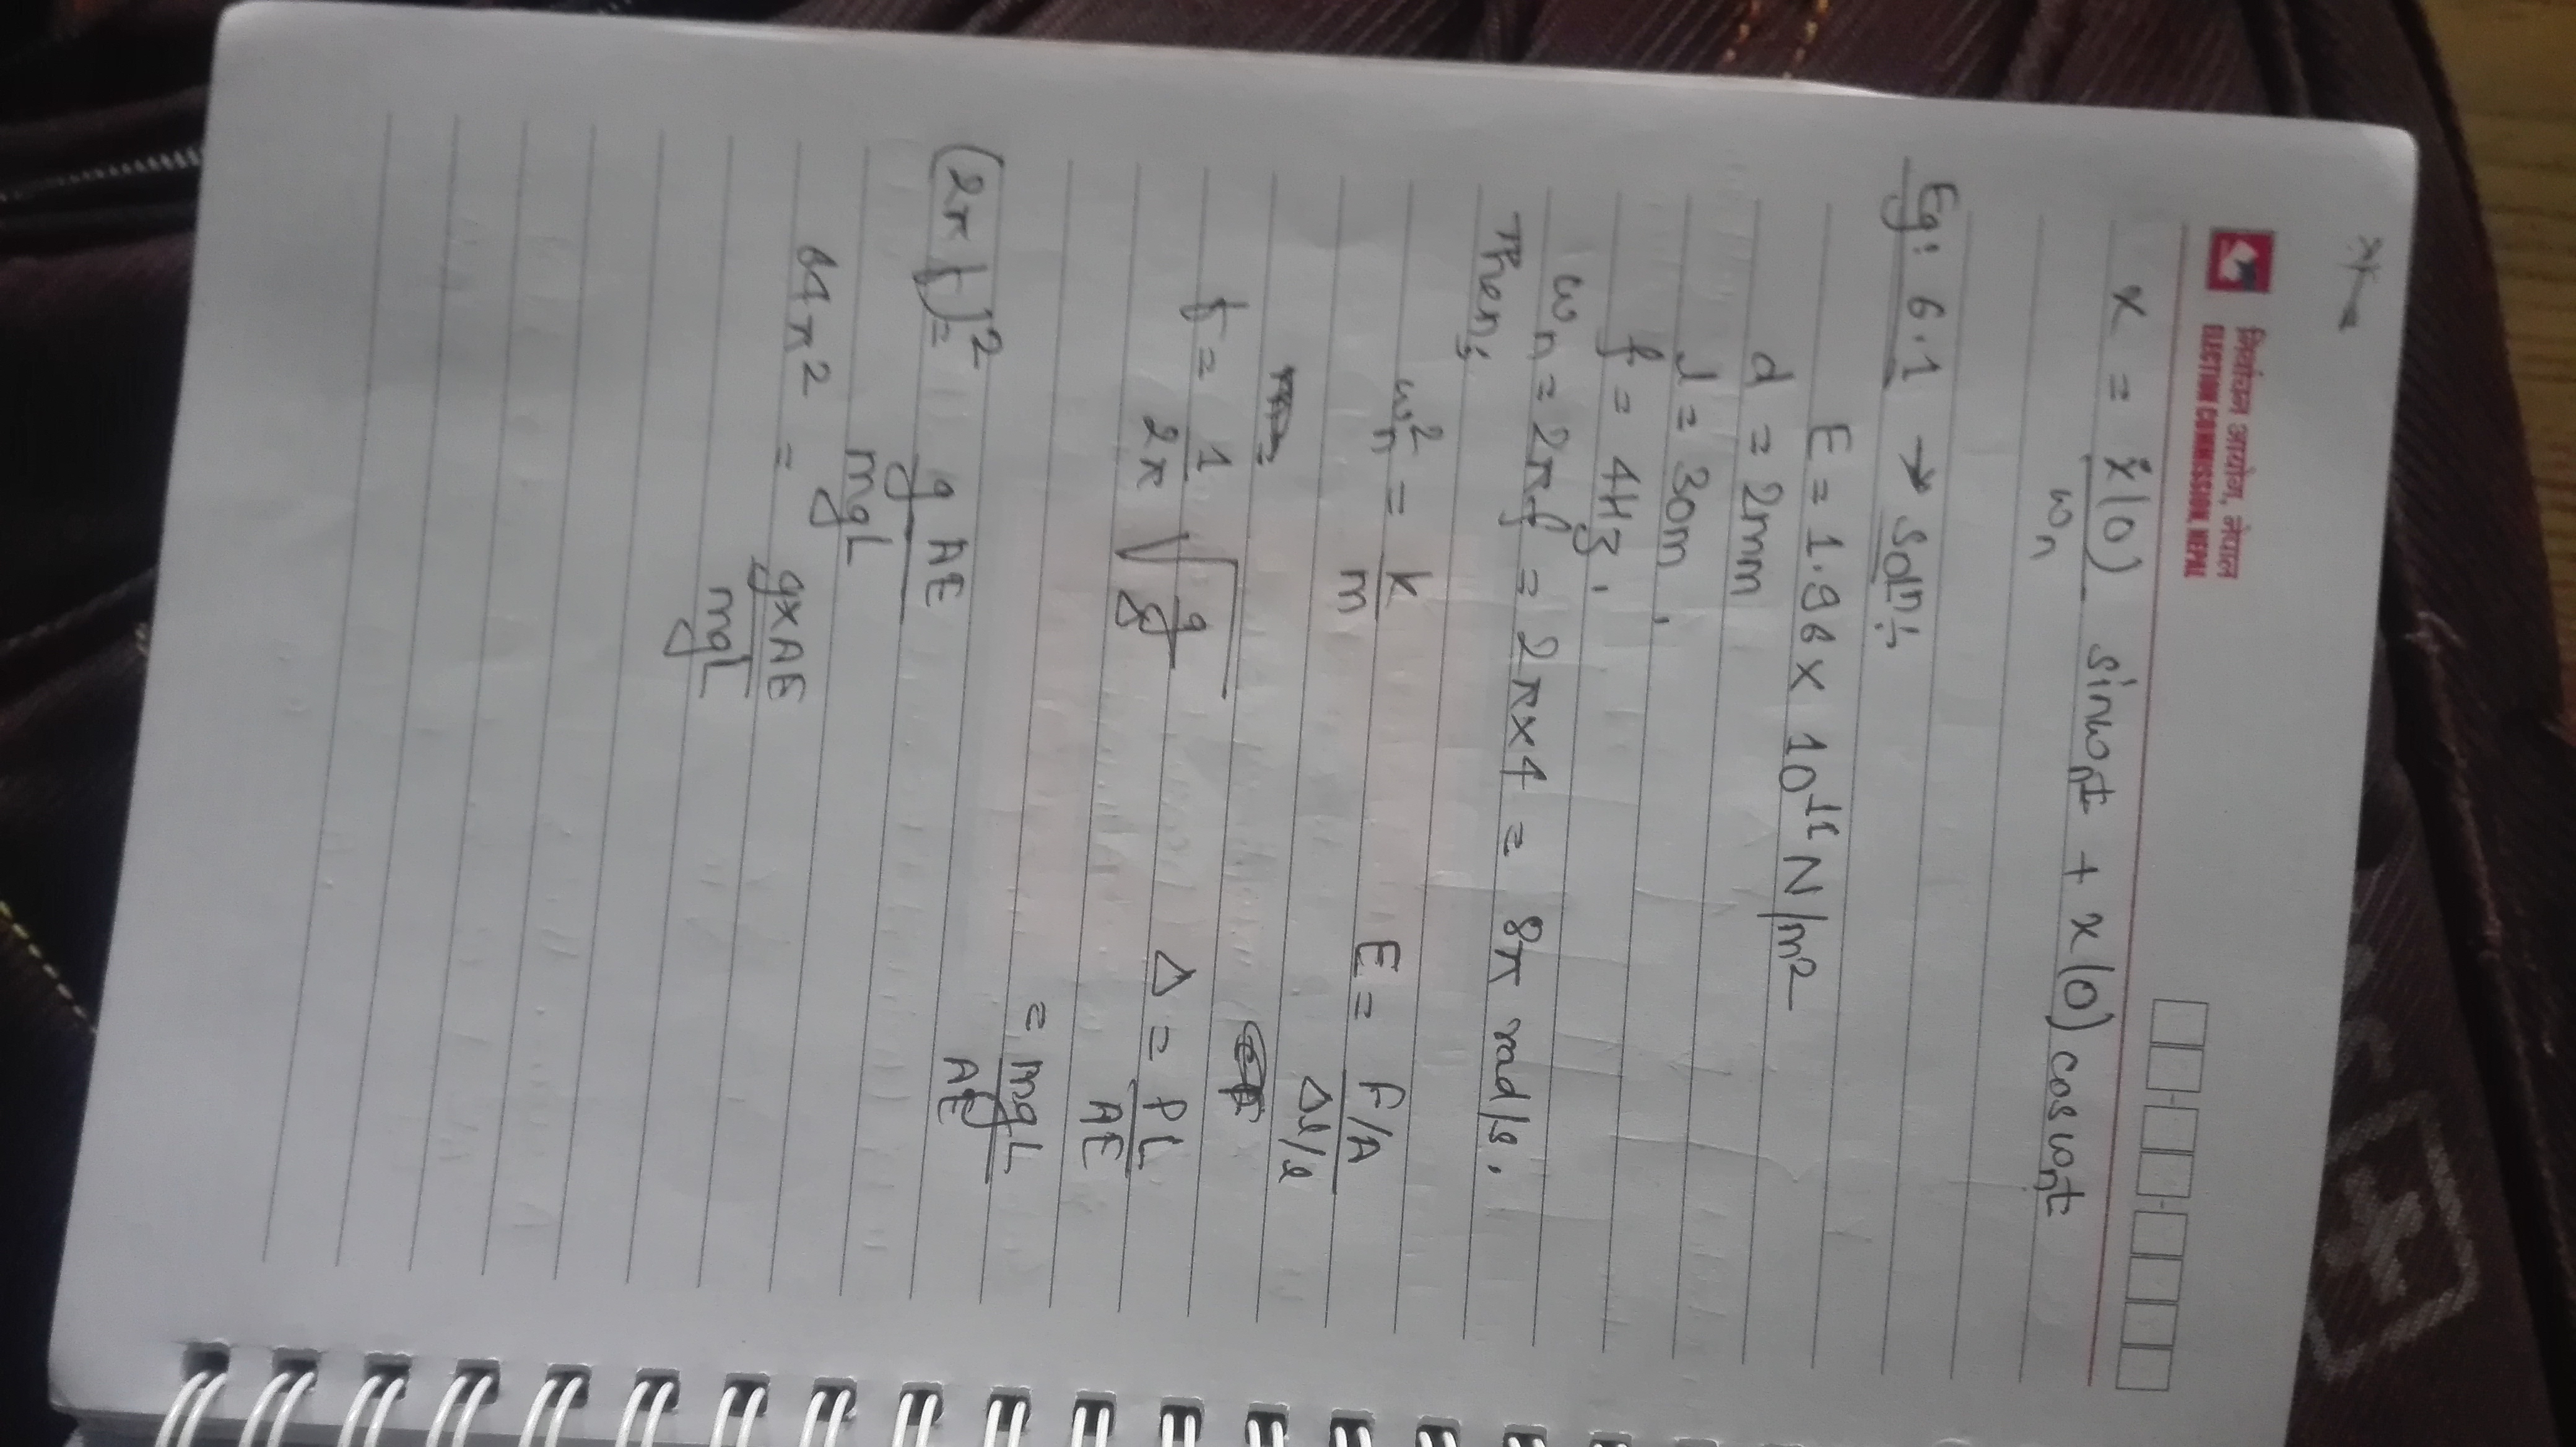 निर्वाचन आयोग, नेपाल
ELECTION COMMISSION, NEPAL
x = ẋ(0)/ωn sinωnt + x(0) cosωnt
Eg: 6.1 → Soln:
E = 1.96 × 10^11 N/m²
d = 2mm
l = 30m,
f = 4Hz,
ωn = 2πf = 2π×4 = 8π rad/s,
Then,
ωn² = k/m
E = F/A / Δl/l
f = 1/2π √g/δ
Δ = PL/AE
= mgL/AE
(2πf)² = g AE/mgL
64π² = g×AE/mgL